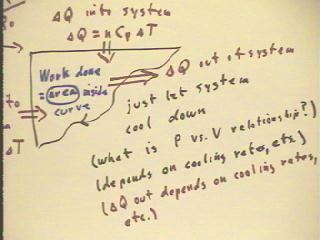 ΔQ into system
ΔQ = n Cp ΔT
Work done
= area inside
curve
ΔQ out of system
just let system
cool down
(what is P vs. V relationship?)
(depends on cooling rates, etc.)
(ΔQ out depends on cooling rates,
etc.)
to
ΔT